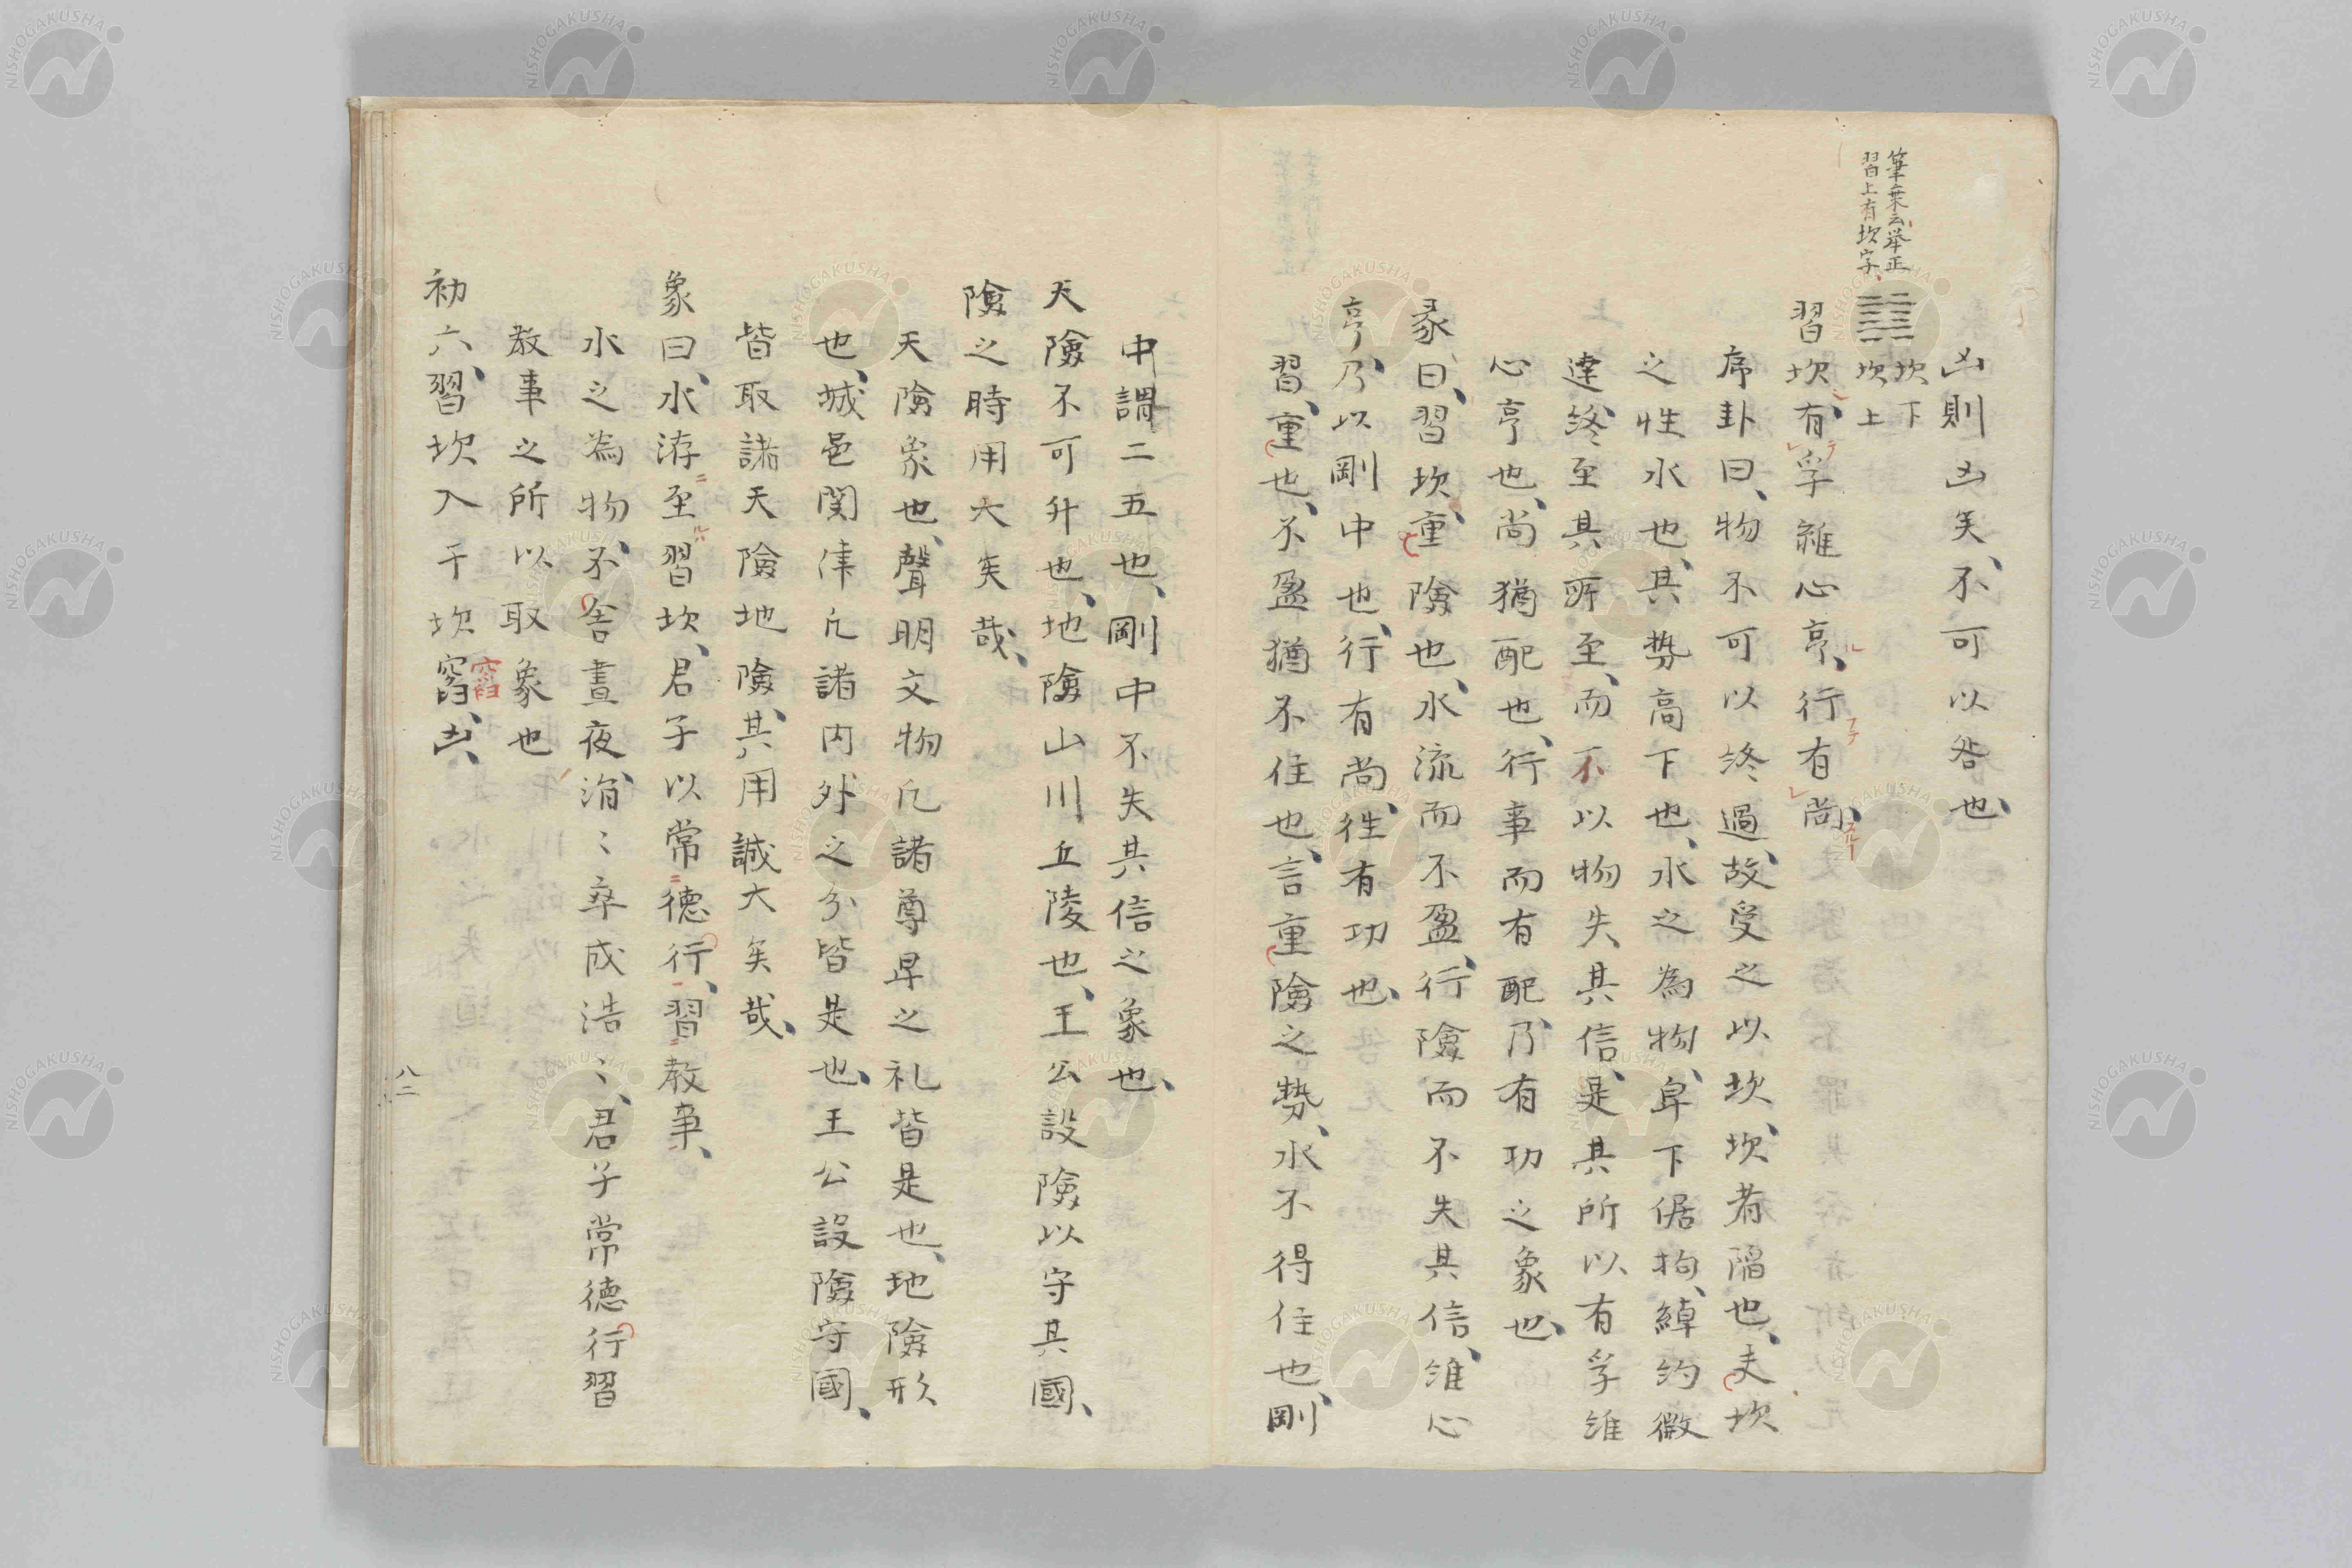 凶則凶矣、不可以咎也、
筆乗云、挙正
習上有坎字、
坎下
坎上
習坎、有孚維心亨、行有尚、
序卦曰、物不可以終過、故受之以坎、坎者陥也、夫坎
之性水也、其勢高下也、水之為物、卑下倨拘、綽約微
達、終至其所至、而不以物失其信、是其所以有孚維
心亨也、尚猶配也、行事而有配、乃有功之象也、
彖曰、習坎、重険也、水流而不盈、行険而不失其信、維心
亨、乃以剛中也、行有尚、往有功也、
習、重也、不盈猶不住也、言重険之勢、水不得住也、剛
中謂二五也、剛中不失其信之象也、
天険不可升也、地険山川丘陵也、王公設険以守其國、
険之時用大矣哉、
天険象也、聲明文物凡諸尊卑之礼皆是也、地険形
也、城邑関津凡諸内外之分皆是也、王公設険守國、
皆取諸天険地険、其用誠大矣哉、
象曰、水洊至習坎、君子以常徳行、習教事、
水之為物、不舎晝夜、涓〻卒成浩〻、君子常徳行習
教事之所以取象也
初六、習坎入于坎窞、凶、
窞
八二